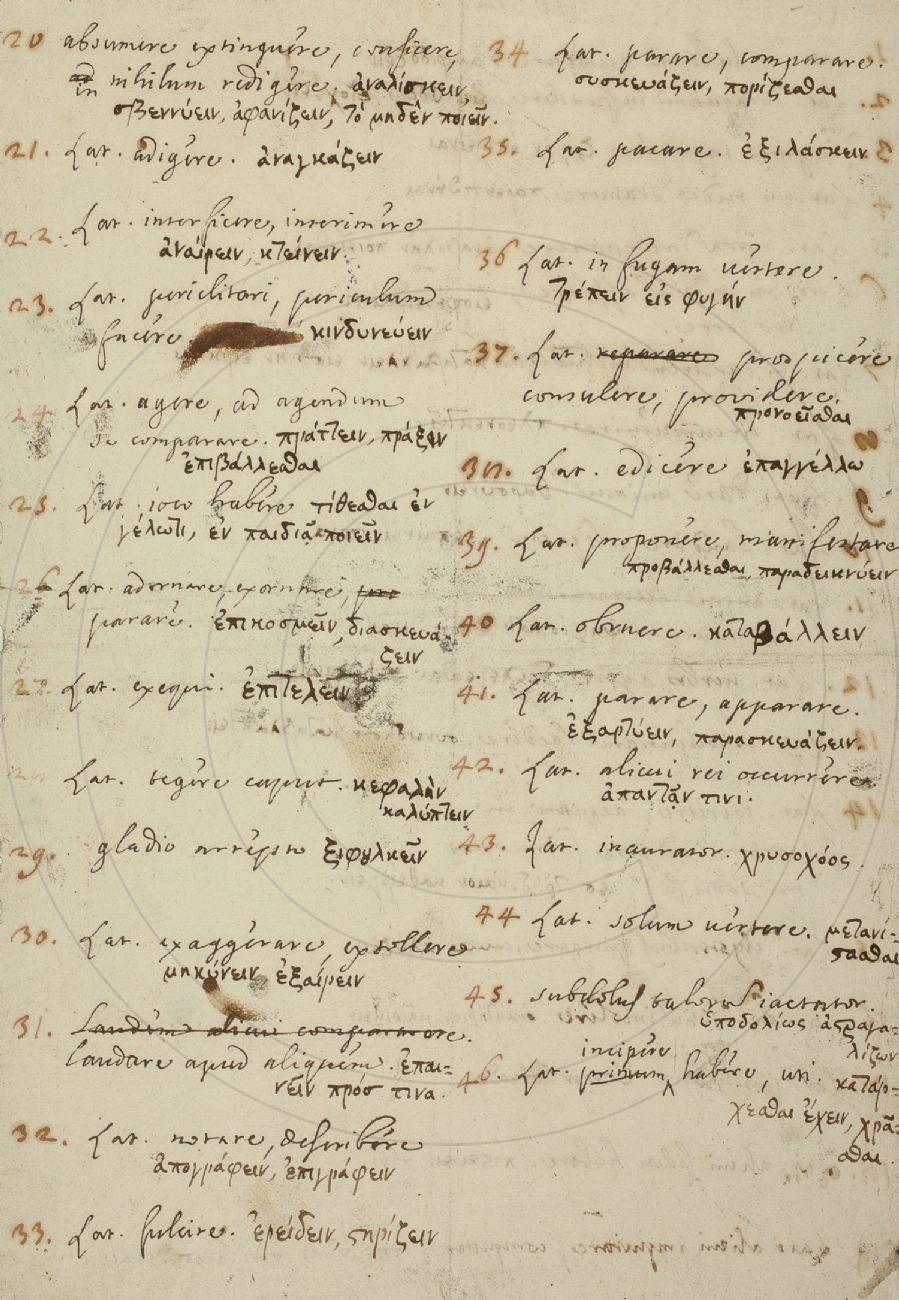 20 absumere extinguere, conficere,
in nihilum redigere. ἀναλίσκειν,
σβεννύειν, ἀφανίζειν, τὸ μηδὲν ποιεῖν.
21. Lat. adigere. ἀναγκάζειν
22. Lat. interficere, interimere
ἀναίρειν, κτείνειν.
23. Lat. periclitari, periculum
facere κινδυνεύειν
24 Lat. agere, ad agendum
se comparare. πράττειν, πράξιν
ἐπιβάλλεσθαι
25. Lat. ioco habere τίθεσθαι ἐν
γέλωτι, ἐν παιδιᾷ ποιεῖν
26 Lat. adornare, exornare,
parare. ἐπικοσμεῖν, διασκευά-
ζειν
27 Lat. exequi. ἐπιτελεῖν
Lat. tegere caput. κεφαλὰν
καλύπτειν
29. gladio arrepto ξιφουλκεῖν
30. Lat. exaggerare, extollere
μηκύνειν, ἐξαίρειν
31. Laudem alicui comparare.
laudare apud aliquem. ἐπαι-
νεῖν πρὸς τινα.
32. Lat. notare, describere
ἀπογράφειν, ἐπιγράφειν
33. Lat. fulcire. ἐρείδειν, στηρίζειν
34 Lat. parare, comparare.
συσκευάζειν, πορίζεσθαι
35. Lat. pacare. ἐξιλάσκειν
36 Lat. in fugam vertere.
τρέπειν εἰς φυγήν
37. Lat. reparare prospicere
consulere, providere.
προνοεῖσθαι
38. Lat. edicere ἐπαγγέλλω
39. Lat. proponere, manifestare
προβάλλεσθαι, παραδεικνύειν
40 Lat. obruere. καταβάλλειν
41. Lat. parare, apparare.
ἐξαρτύειν, παρασκευάζειν.
42. Lat. alicui rei occurrere.
ἀπαντᾷν τινι.
43. Lat. inaurator. χρυσοχόος.
44 Lat. solum vertere. μετανί-
στασθαι
45. subdolus talorum iactator.
ὑποδολίως ἀστραγα-
λίζων
incipere
46. Lat. primum habere, uti. κατάρ-
χεσθαι ἔχειν, χρᾶ-
σθαι.